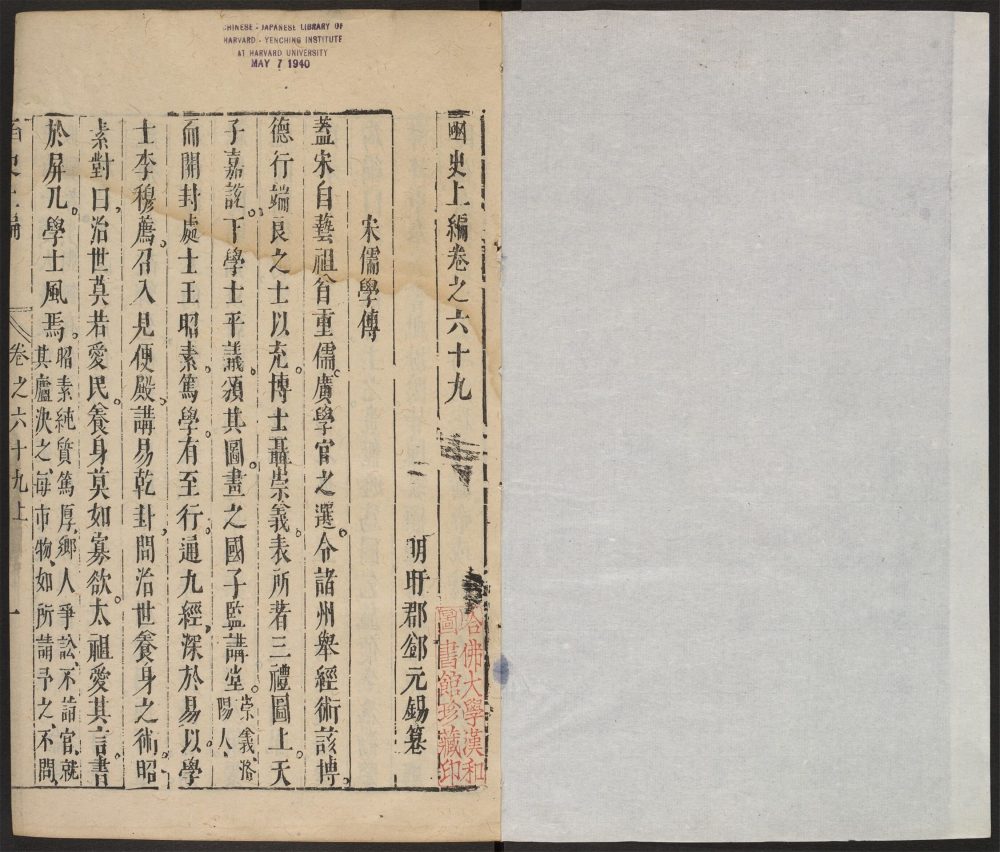 CHINESE - JAPANESE LIBRARY OF
HARVARD - YENCHING INSTITUTE
AT HARVARD UNIVERSITY
MAY 7 1940
函史上編卷之六十九
哈佛大學漢和
圖書館珍藏印
明盱郡鄧元錫纂
宋儒學傳
蓋宋自藝祖首重儒。廣學官之選。令諸州舉經術該博。
德行端良之士以充。博士聶崇義表所著三禮圖上。天
子嘉許。下學士平議。頒其圖。畫之國子監講堂。崇義、洛
陽人、
而開封處士王昭素。篤學。有至行。通九經。深於易。以學
士李穆薦。召入見便殿。講易乾卦。問治世養身之術。昭
素對曰。治世莫若愛民。養身莫如寡欲。太祖愛其言。書
於屏几。學士風焉。昭素純質篤厚、鄉人爭訟、不詣官、就
其廬決之、每市物、如所請予之、不問、
函史上編
卷之六十九上
一